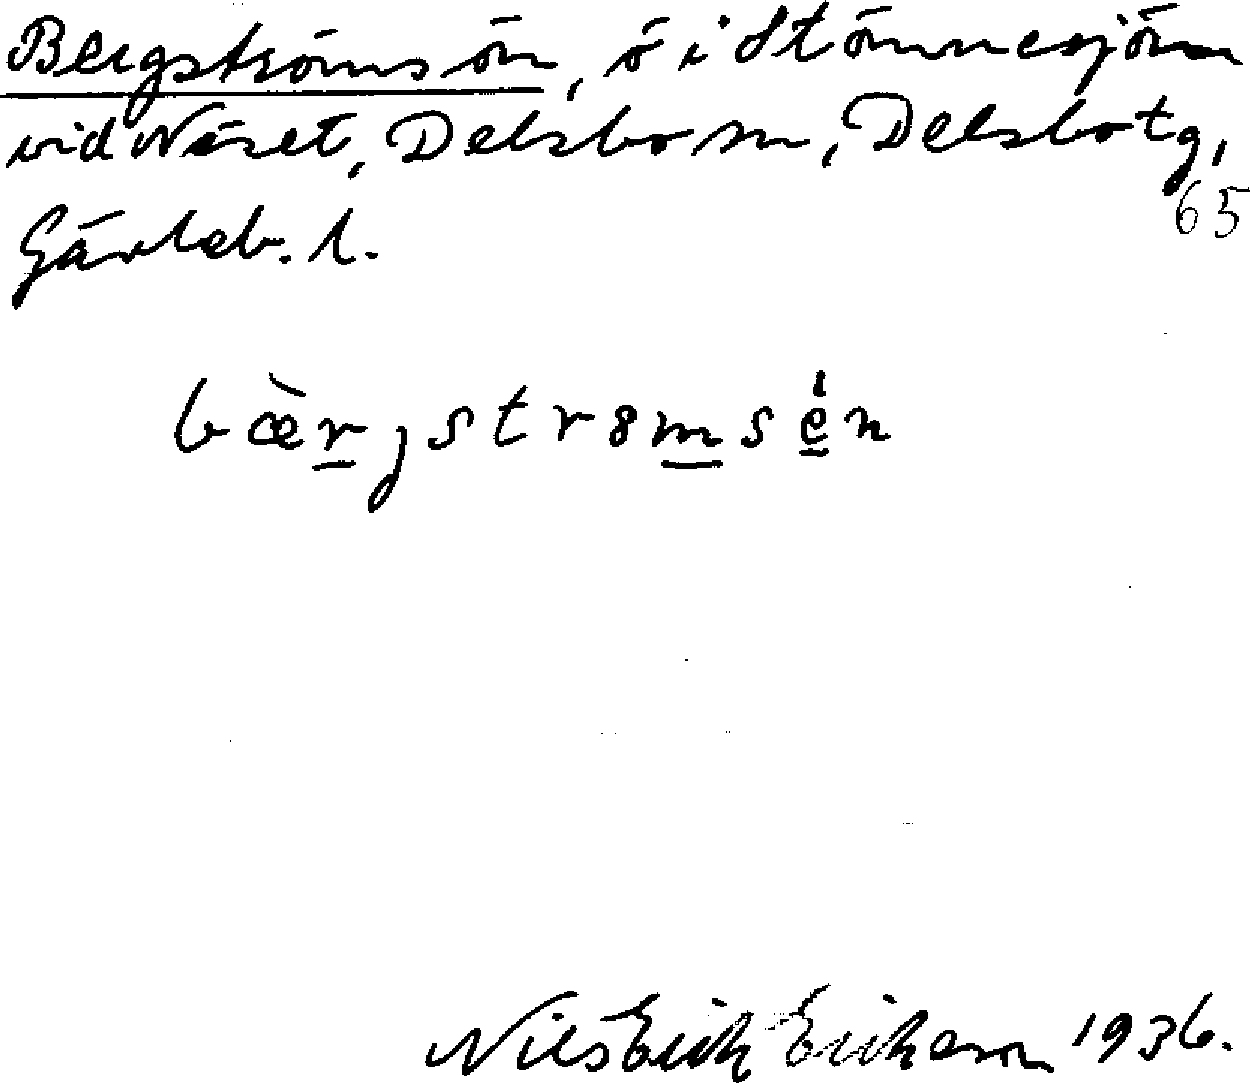 Bergströmsön, ö i Stömnesjön
vid Näset, Delsbo sn, Delsbo tg,
65
Gävleb. l.
bæ̀r̲ȷstr8m̲sė̲n
Nils Erik Erikson 1936.